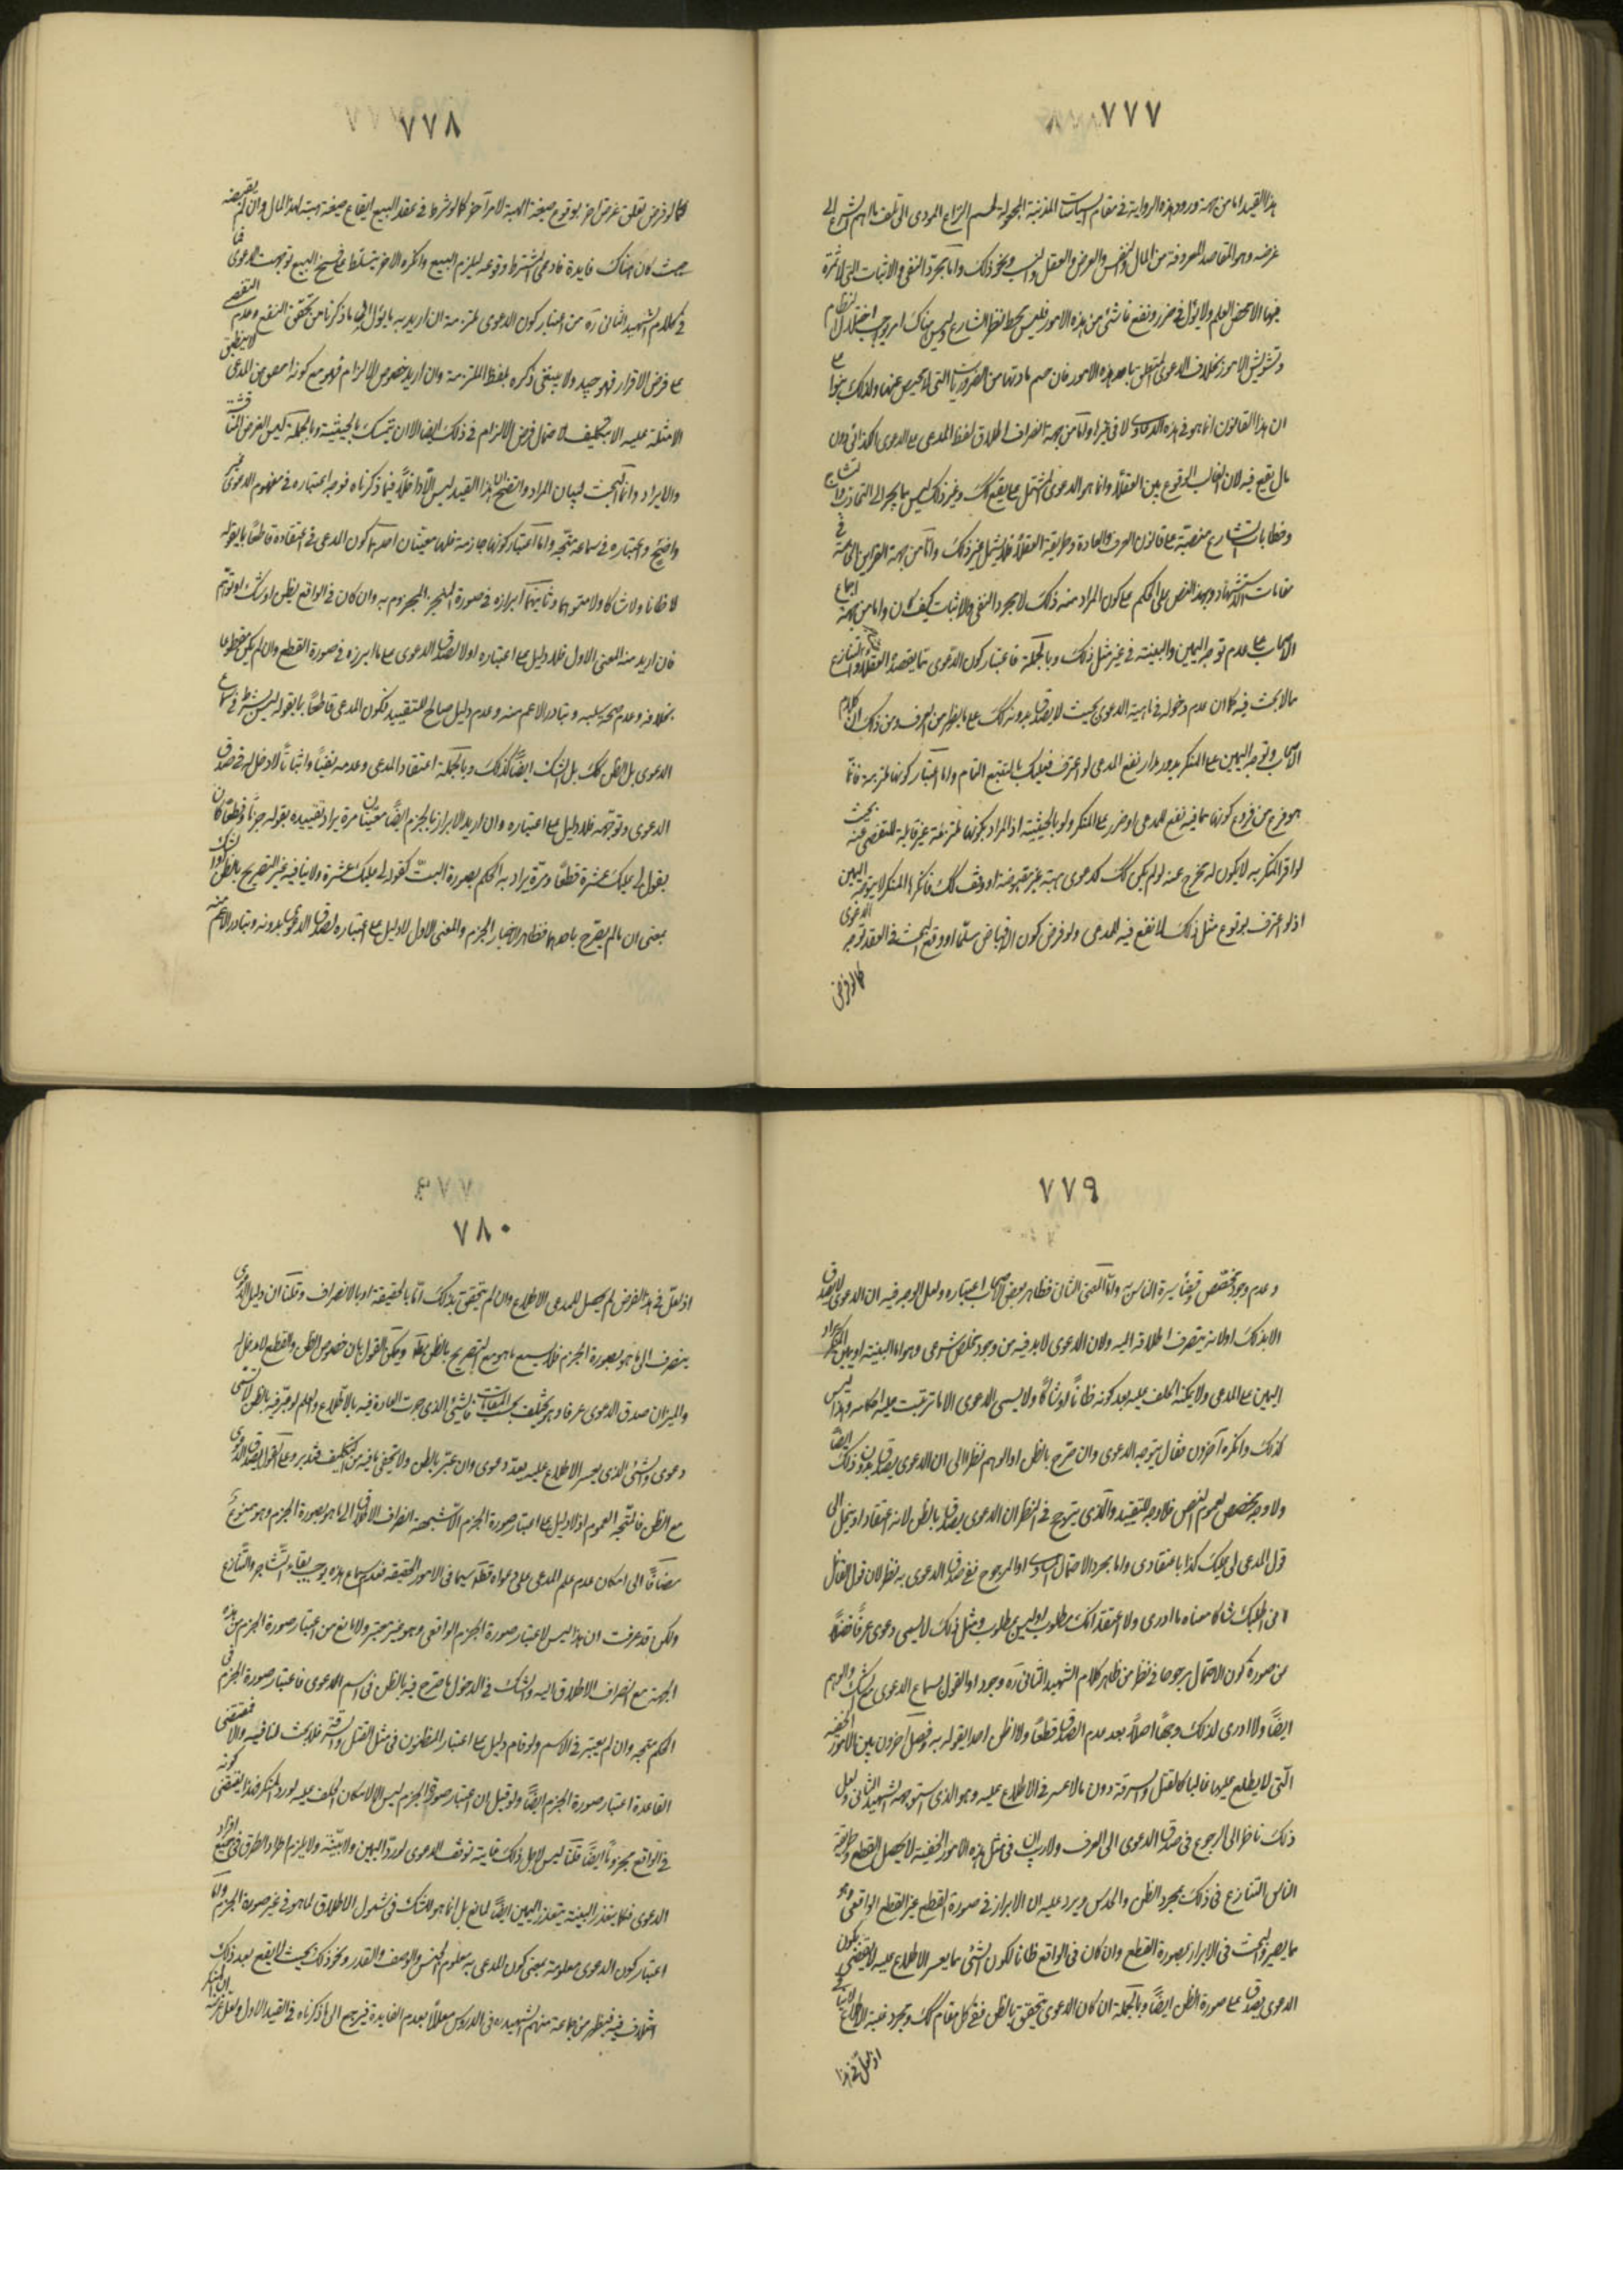 ٧٧٧
هذا القيد اما من جهة ورود هذه الرواية في مقام السياسات المدنية المجعولة لحسم النزاع المودى الى تلف ما اهتم الشرع الى
غرضه وهو المقاصد المعروفة من المال والنفس والعرض والعقل والنسب ونحو ذلك واما مجرد النفي والاثبات التي لا ثمرة
فيها الا محض العلم ولا يؤل الى ضرر ونفع ناشئ من هذه الامور فليس محط نظر الشارع وليس هناك امر يوجب اختلال النظام
وتشويش الامور بخلاف الدعوى المتعلق باحد هذه الامور فان حسم مادتها من الضروريات التي لا محيص عنها ولذلك بنوا على
ان هذا القانون انما هو في هذه الدعاوى لا في غيرها واما من جهة انصراف اطلاق لفظ المدعى على الدعوى الكذائي دون
مال يقع فيه لان الغالب الوقوع بين العقلاء وانما هو الدعوى المشتمل على نفع كك وغير ذلك ليس مما ينجر الى التحاذب والتشاجر
وخطابات الشارع منصبة على قانون العرف والعادة وطريقة العقلاء فلا يشمل غير ذلك واما من جهة القراين الى جهة في
مقامات الاستشهاد وبهذا النص على الحكم على كون المراد منه ذلك لا مجرد النفي والاثبات كيف كان واما من جهة اجماع
الاصحاب على عدم توجه اليمين والبينة في غير مثل ذلك وبالجملة فاعتبار كون الدعوى مما يقصده العقلاء والتنازع
مما لا بحث فيه كما ان عدم دخوله في ماهية الدعوى بحيث لا يصدق بدونه كك على ما يظهر من العرف ومن ذلك ان كلام
الاصحاب وتوجه اليمين على المنكر يدور مدار نفع المدعى لو اعترف فعليك بالتتبع التام واما اعتبار كونها ملزمة فانما
هو فرع من فروع كونها مما فيه نفع للمدعى او ضرر على المنكر ولو بالحيثية اذ المراد بكونها ملزمة غير قابلة للتفصى عنه بحيث
لو اقر المنكر به لا يكون له مخرج عنه لو لم يكن كك كدعوى هبة غير مقبوضة او وقف كك فانكرها المنكر لا يتوجه اليمين
اذ لو اعترف بوقوع مثل ذلك لا نفع فيه للمدعى ولو فرض كون الاقباض مسلما او وقع البحث في العقد توجه الدعوى
كما لو فرض
٧٧٨
كما لو فرض تعلق غرض اخر بوقوع صيغة الهبة لامر آخر كما لو شرط في عقد البيع ايقاع صيغة هبة لهذا المال وان لم يقبضه
بحيث كان هناك فايدة فادعى المشترط وقوعه ليلزم البيع وانكره الاخر ليتسلط على فسخ البيع توجهت الدعوى فما
في كلام الشهيد الثاني ره من اعتبار كون الدعوى ملزمة ان اريد به ما يؤل الى ما ذكرنا من تحقق النفع وعدم التفصى
على فرض الاقرار فهو جيد ولا ينبغى ذكره بلفظ الملزمة وان اريد خصوص الالزام فهو مع كونه اخص من المدعى لا ينطبق
الامثلة عليه الا بتكليف لاحتمال فرض الالزام في ذلك ايضا الا ان يتمسك بالحيثية وبالجملة ليس الغرض المناقشة
والايراد وانما البحث لبيان المراد واتضح ان هذا القيد ليس الا داخلا فيما ذكرناه فوجه اعتباره في مفهوم الدعوى غير
واضح واعتباره في سماعه متجه واما اعتبار كونها جازمة فلها معنيان احدهما كون المدعى في اعتقاده قاطعا بما يقوله
لا ظانا ولا شاكا ولا متوهما وثانيهما ابرازه في صورة المنجز المجزوم به وان كان في الواقع يظن او يشك او يتوهم
فان اريد منه المعنى الاول فلا دليل على اعتباره اولا لصدق الدعوى على ما ابرزه في صورة القطع وان لم يكن مقطوعا
بخلافه وعدم صحة سلبه وتبادر الاعم منه وعدم دليل صالح للتقييد فكون المدعى قاطعا بما يقوله ليس بشرط في سماع
الدعوى بل الظن كك بل الشك ايضا كذلك وبالجملة اعتقاد المدعى وعدمه نفيا واثباتا لا دخل له في صدق
الدعوى وتوجهه فلا دليل على اعتباره وان اريد الابراز بالجزم ايضا معنيان مرة يراد تقييده بقوله جزما وقطعا كان
يقول لي عليك عشرة قطعا ومرة يراد به الحكم بصورة البت كقوله لي عليك عشرة ولا ينافيه غير التصريح بالظن او الشك
بمعنى ان ما لم يصرح باحدهما فظاهر الاخبار الجزم والمعنى الاول لا دليل على اعتباره لصدق الدعوى بدونه وتبادر الاعم منه
٧٧٩
وعدم وجود مخصص وقضاء سيرة الناس به واما المعنى الثاني فظاهر بعض الاصحاب اعتباره ولعل الوجه فيه ان الدعوى لا يصدق
الا بذلك او لانه ينصرف اطلاقه اليه ولان الدعوى لا بد فيه من وجود مخلص شرعى وهو اما البينة او يمين المنكر او رد
اليمين على المدعى ولا يمكنه الحلف عليه بعد كونه ظانا او شاكا ولا يسمى الدعوى الا ما ترتبت عليه احكامه وهذا ليس
كذلك وانكره آخرون فقال يتوجه الدعوى وان صرح بالظن او الوهم نظرا الى ان الدعوى يصدق بدون ذلك ايضا
ولا وجه لتخصص لعموم النص فلا وجه للتقييد والذي يترجح في النظر ان الدعوى يصدق بالظن لانه اعتقاد او ينحل الى
قول المدعى لي عليك كذا باعتقادى واما مجرد الاحتمال المساوى او المرجوح ففي صدق الدعوى به نظر لان قول القائل
انى اطلبك شاكا معناه ما ادرى ولا اعتقد انك مطلوب او ليس بمطلوب ومثل ذلك لا يسمى دعوى عرفا فضلا
من صورة كون الاحتمال مرجوحا في نظر من ظاهر كلام الشهيد الثاني ره وجود او القول بسماع الدعوى مع الشك والوهم
ايضا ولا ادرى لذلك وجها اصلا بعد عدم الصدق قطعا ولا اظن احدا يقول به وفصل آخرون بين الامور الخفية
التى لا يطلع عليها غالبا كالقتل والسرقة دون ما لا عسر في الاطلاع عليه وهو الذى استوجهه الشهيد الثاني ولعل
ذلك ناظر الى الرجوع في صدق الدعوى الى العرف ولا ريب ان في مثل هذه الامور الخفية لا يحصل القطع وطريقة
الناس التنازع في ذلك بمجرد الظن والحدس ويرد عليه ان الابراز في صورة القطع غير القطع الواقعى وهو
مما يصير والبحث في الابراز بصورة القطع وان كان في الواقع ظانا لكون الشئ مما يعسر الاطلاع عليه لا يقتضى كون
الدعوى يصدق على صورة الظن ايضا وبالجملة ان كان الدعوى يتحقق بالظن ففي كل مقام كك ومجرد غلبة الاطلاع لا ينافى
اذ لعل في هذا
٧٨٠
اذ لعل في هذا الفرض لم يحصل للمدعى الاطلاع وان لم يتحقق بذلك اما بالحقيقة او بالانصراف وقلنا ان دليل الدعوى
ينصرف الى ما هو بصورة الجزم فلا يسمع ما هو مع التصريح بالظن مطلقا ويمكن القول بان خصوص الظن والقطع لا مدخل له
والميزان صدق الدعوى عرفا وهو يختلف بحسب المقامات فالشئ الذى جرت العادة فيه بالاطلاع والعلم لو عبر فيه بالظن لا تسمى
دعوى والشئ الذى يعسر الاطلاع عليه يعد دعوى وان عبر بالظن ولا يخفى ما فيه من التكليف فتدبر وعلى القول بصدق الدعوى
مع الظن فالمتجه العموم اذ لا دليل على اعتبار صورة الجزم الا شبهة انصراف الاطلاق الى ما هو بصورة الجزم وهو ممنوع
مضافا الى امكان عدم علم المدعى على دعواه قطعا سيما في الامور الخفيفة فعدم سماع هذه يوجب بقاء التشاجر والتنازع
ولكن قد عرفت ان هذا ليس لاعتبار صورة الجزم الواقعى وهو غير معتبر ولا مانع من اعتبار صورة الجزم من هذه
الجهة مع انصراف الاطلاق اليه والشك في الدخول ما صرح فيه بالظن في اسم الدعوى فاعتبار صورة الجزم في
الحكم متجه وان لم يعتبر في الاسم ولو قام دليل على اعتبار المظنون في مثل القتل والسرقة فلا بحث لنا فيه والا فمقتضى
القاعدة اعتبار صورة الجزم ايضا ولو قيل ان اعتبار صورة الجزم ليس الا لامكان الحلف عليه لو رد المنكر فهذا يقتضى كونه
في الواقع مجزوما ايضا قلنا ليس لاجل ذلك غايته توقف الدعوى لو رد اليمين ولا بينة ولا يلزم اطراد الطرق في جميع افراد
الدعوى فكما يتعذر البينة يتعذر اليمين ايضا لمانع بل انما هو للشك في شمول الاطلاق لما هو في غير صورة الجزم واما
اعتبار كون الدعوى معلومة بمعنى كون المدعى به معلوم الجنس والوصف والقدر ونحو ذلك بحيث لا يقع بعد ذلك
اختلاف فيه فيظهر من جماعة منهم الشهيد ره في الدروس معللا بعدم الفايدة فيرجع الى ما ذكرناه في القيد الاول ولعل غرضه ان المنكر